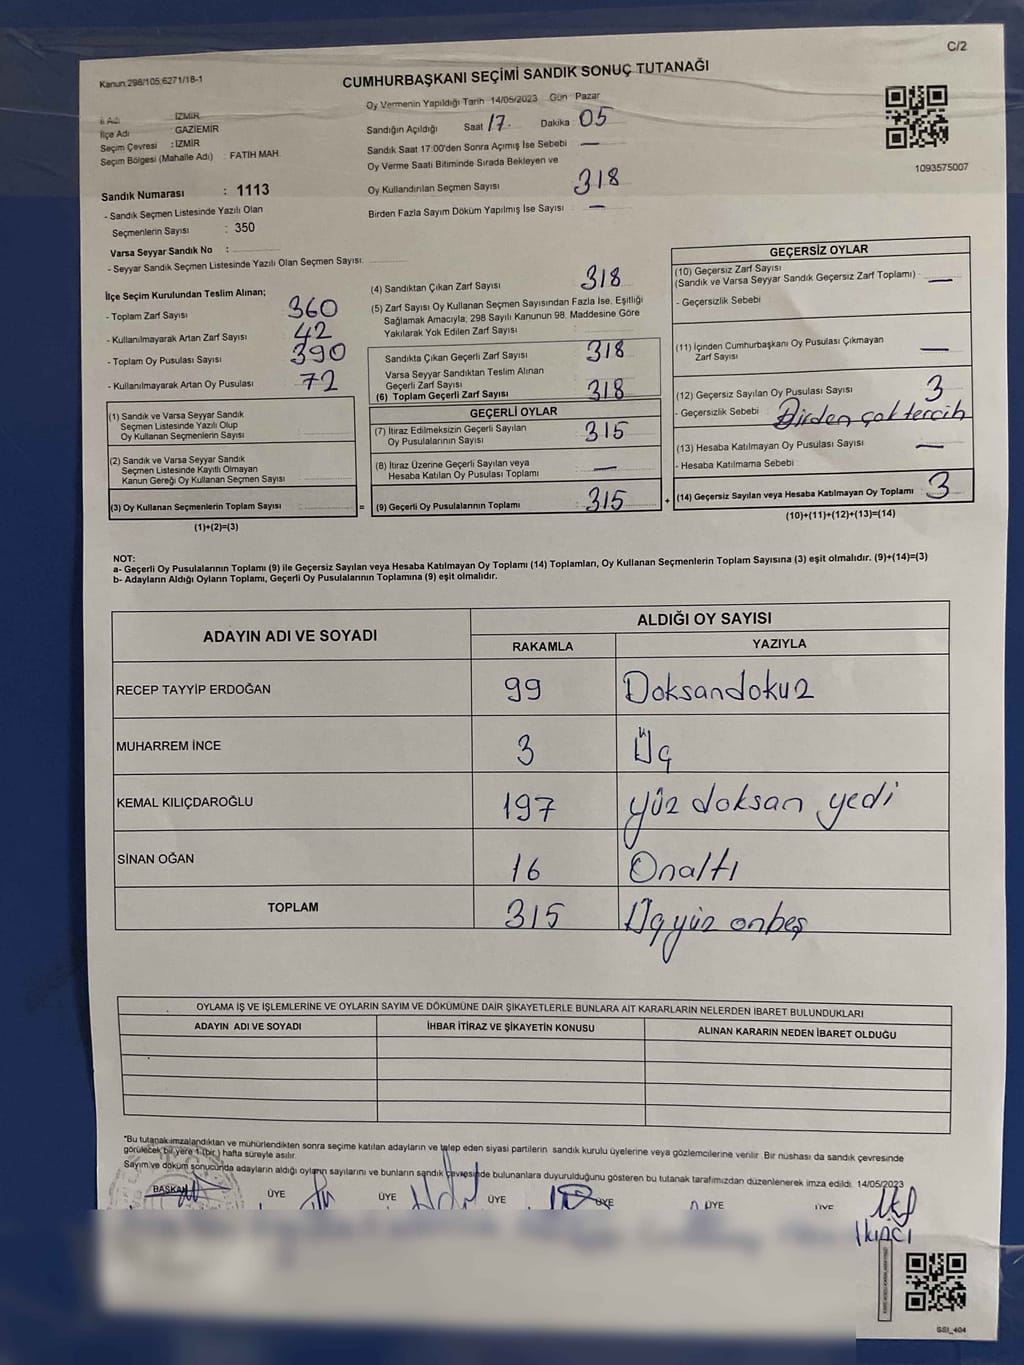 C/2
Kanun:298/105,6271/18-1
CUMHURBAŞKANI SEÇİMİ SANDIK SONUÇ TUTANAĞI
İl Adı : İZMİR
İlçe Adı GAZİEMİR
Seçim Çevresi : İZMİR
Seçim Bölgesi (Mahalle Adı) : FATİH MAH.
Sandık Numarası : 1113
- Sandık Seçmen Listesinde Yazılı Olan
Seçmenlerin Sayısı : 350
Varsa Seyyar Sandık No :
- Seyyar Sandık Seçmen Listesinde Yazılı Olan Seçmen Sayısı:
Oy Vermenin Yapıldığı Tarih :14/05/2023 Gün : Pazar
Sandığın Açıldığı Saat 17. Dakika 05
Sandık Saat 17:00'den Sonra Açımış İse Sebebi —
Oy Verme Saati Bitiminde Sırada Bekleyen ve
Oy Kullandırılan Seçmen Sayısı 318
Birden Fazla Sayım Döküm Yapılmış İse Sayısı : —
1093575007
İlçe Seçim Kurulundan Teslim Alınan;
- Toplam Zarf Sayısı 360
- Kullanılmayarak Artan Zarf Sayısı 42
- Toplam Oy Pusulası Sayısı 390
- Kullanılmayarak Artan Oy Pusulası 72
(1) Sandık ve Varsa Seyyar Sandık
Seçmen Listesinde Yazılı Olup
Oy Kullanan Seçmenlerin Sayısı
(2) Sandık ve Varsa Seyyar Sandık
Seçmen Listesinde Kayıtlı Olmayan
Kanun Gereği Oy Kullanan Seçmen Sayısı :
(3) Oy Kullanan Seçmenlerin Toplam Sayısı :
=
(1)+(2)=(3)
(4) Sandıktan Çıkan Zarf Sayısı 318
(5) Zarf Sayısı Oy Kullanan Seçmen Sayısından Fazla İse, Eşitliği
Sağlamak Amacıyla; 298 Sayılı Kanunun 98. Maddesine Göre
Yakılarak Yok Edilen Zarf Sayısı :
Sandıkta Çıkan Geçerli Zarf Sayısı 318
Varsa Seyyar Sandıktan Teslim Alınan
Geçerli Zarf Sayısı
(6) Toplam Geçerli Zarf Sayısı 318
GEÇERLİ OYLAR
(7) İtiraz Edilmeksizin Geçerli Sayılan
Oy Pusulalarının Sayısı 315
(8) İtiraz Üzerine Geçerli Sayılan veya
Hesaba Katılan Oy Pusulası Toplamı —
(9) Geçerli Oy Pusulalarının Toplamı 315
+
GEÇERSİZ OYLAR
(10) Geçersiz Zarf Sayısı
(Sandık ve Varsa Seyyar Sandık Geçersiz Zarf Toplamı) : —
- Geçersizlik Sebebi
(11) İçinden Cumhurbaşkanı Oy Pusulası Çıkmayan
Zarf Sayısı —
(12) Geçersiz Sayılan Oy Pusulası Sayısı 3
- Geçersizlik Sebebi Birden çok tercih
(13) Hesaba Katılmayan Oy Pusulası Sayısı —
- Hesaba Katılmama Sebebi
(14) Geçersiz Sayılan veya Hesaba Katılmayan Oy Toplamı : 3
(10)+(11)+(12)+(13)=(14)
NOT:
a- Geçerli Oy Pusulalarının Toplamı (9) ile Geçersiz Sayılan veya Hesaba Katılmayan Oy Toplamı (14) Toplamları, Oy Kullanan Seçmenlerin Toplam Sayısına (3) eşit olmalıdır. (9)+(14)=(3)
b- Adayların Aldığı Oyların Toplamı, Geçerli Oy Pusulalarının Toplamına (9) eşit olmalıdır.
ADAYIN ADI VE SOYADI
ALDIĞI OY SAYISI
RAKAMLA YAZIYLA
RECEP TAYYİP ERDOĞAN 99 Doksandokuz
MUHARREM İNCE 3 Üç
KEMAL KILIÇDAROĞLU 197 yüz doksan yedi
SİNAN OĞAN 16 Onaltı
TOPLAM 315 Üçyüz onbeş
OYLAMA İŞ VE İŞLEMLERİNE VE OYLARIN SAYIM VE DÖKÜMÜNE DAİR ŞİKAYETLERLE BUNLARA AİT KARARLARIN NELERDEN İBARET BULUNDUKLARI
ADAYIN ADI VE SOYADI İHBAR İTİRAZ VE ŞİKAYETİN KONUSU ALINAN KARARIN NEDEN İBARET OLDUĞU
*Bu tutanak imzalandıktan ve mühürlendikten sonra seçime katılan adayların ve talep eden siyasi partilerin sandık kurulu üyelerine veya gözlemcilerine verilir. Bir nüshası da sandık çevresinde
görülecek bir yere 1 (bir) hafta süreyle asılır.
Sayım ve döküm sonucunda adayların aldığı oyların sayılarını ve bunların sandık çevresinde bulunanlara duyurulduğunu gösteren bu tutanak tarafımızdan düzenlenerek imza edildi. 14/05/2023
BAŞKAN ÜYE ÜYE ÜYE ÜYE ÜYE ÜYE
İKİNCİ
SSI_404